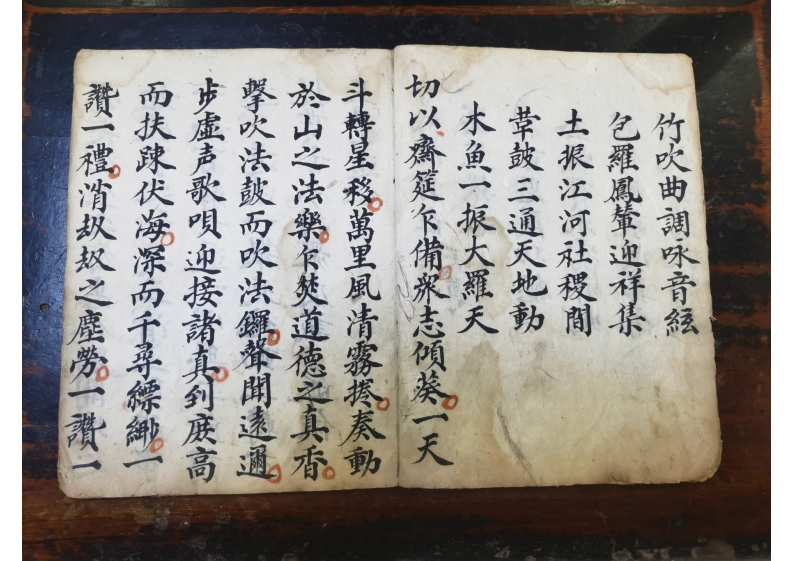 竹吹曲調咏音絃
匏羅鳳輦迎祥集
土振江河社稷間
革鼓三通天地動
木魚一振大羅天
切以齋筵乍備衆志傾葵一天
斗轉星移萬里風清霧捲奏動
於山之法樂乍焚道德之真香
擊吹法鼓而吹法鑼聲聞遠邇
步虛声歌唄迎接諸真到庭高
而扶踈伏海深而千尋縹緲一
讚一禮消刼刼之塵勞一讚一